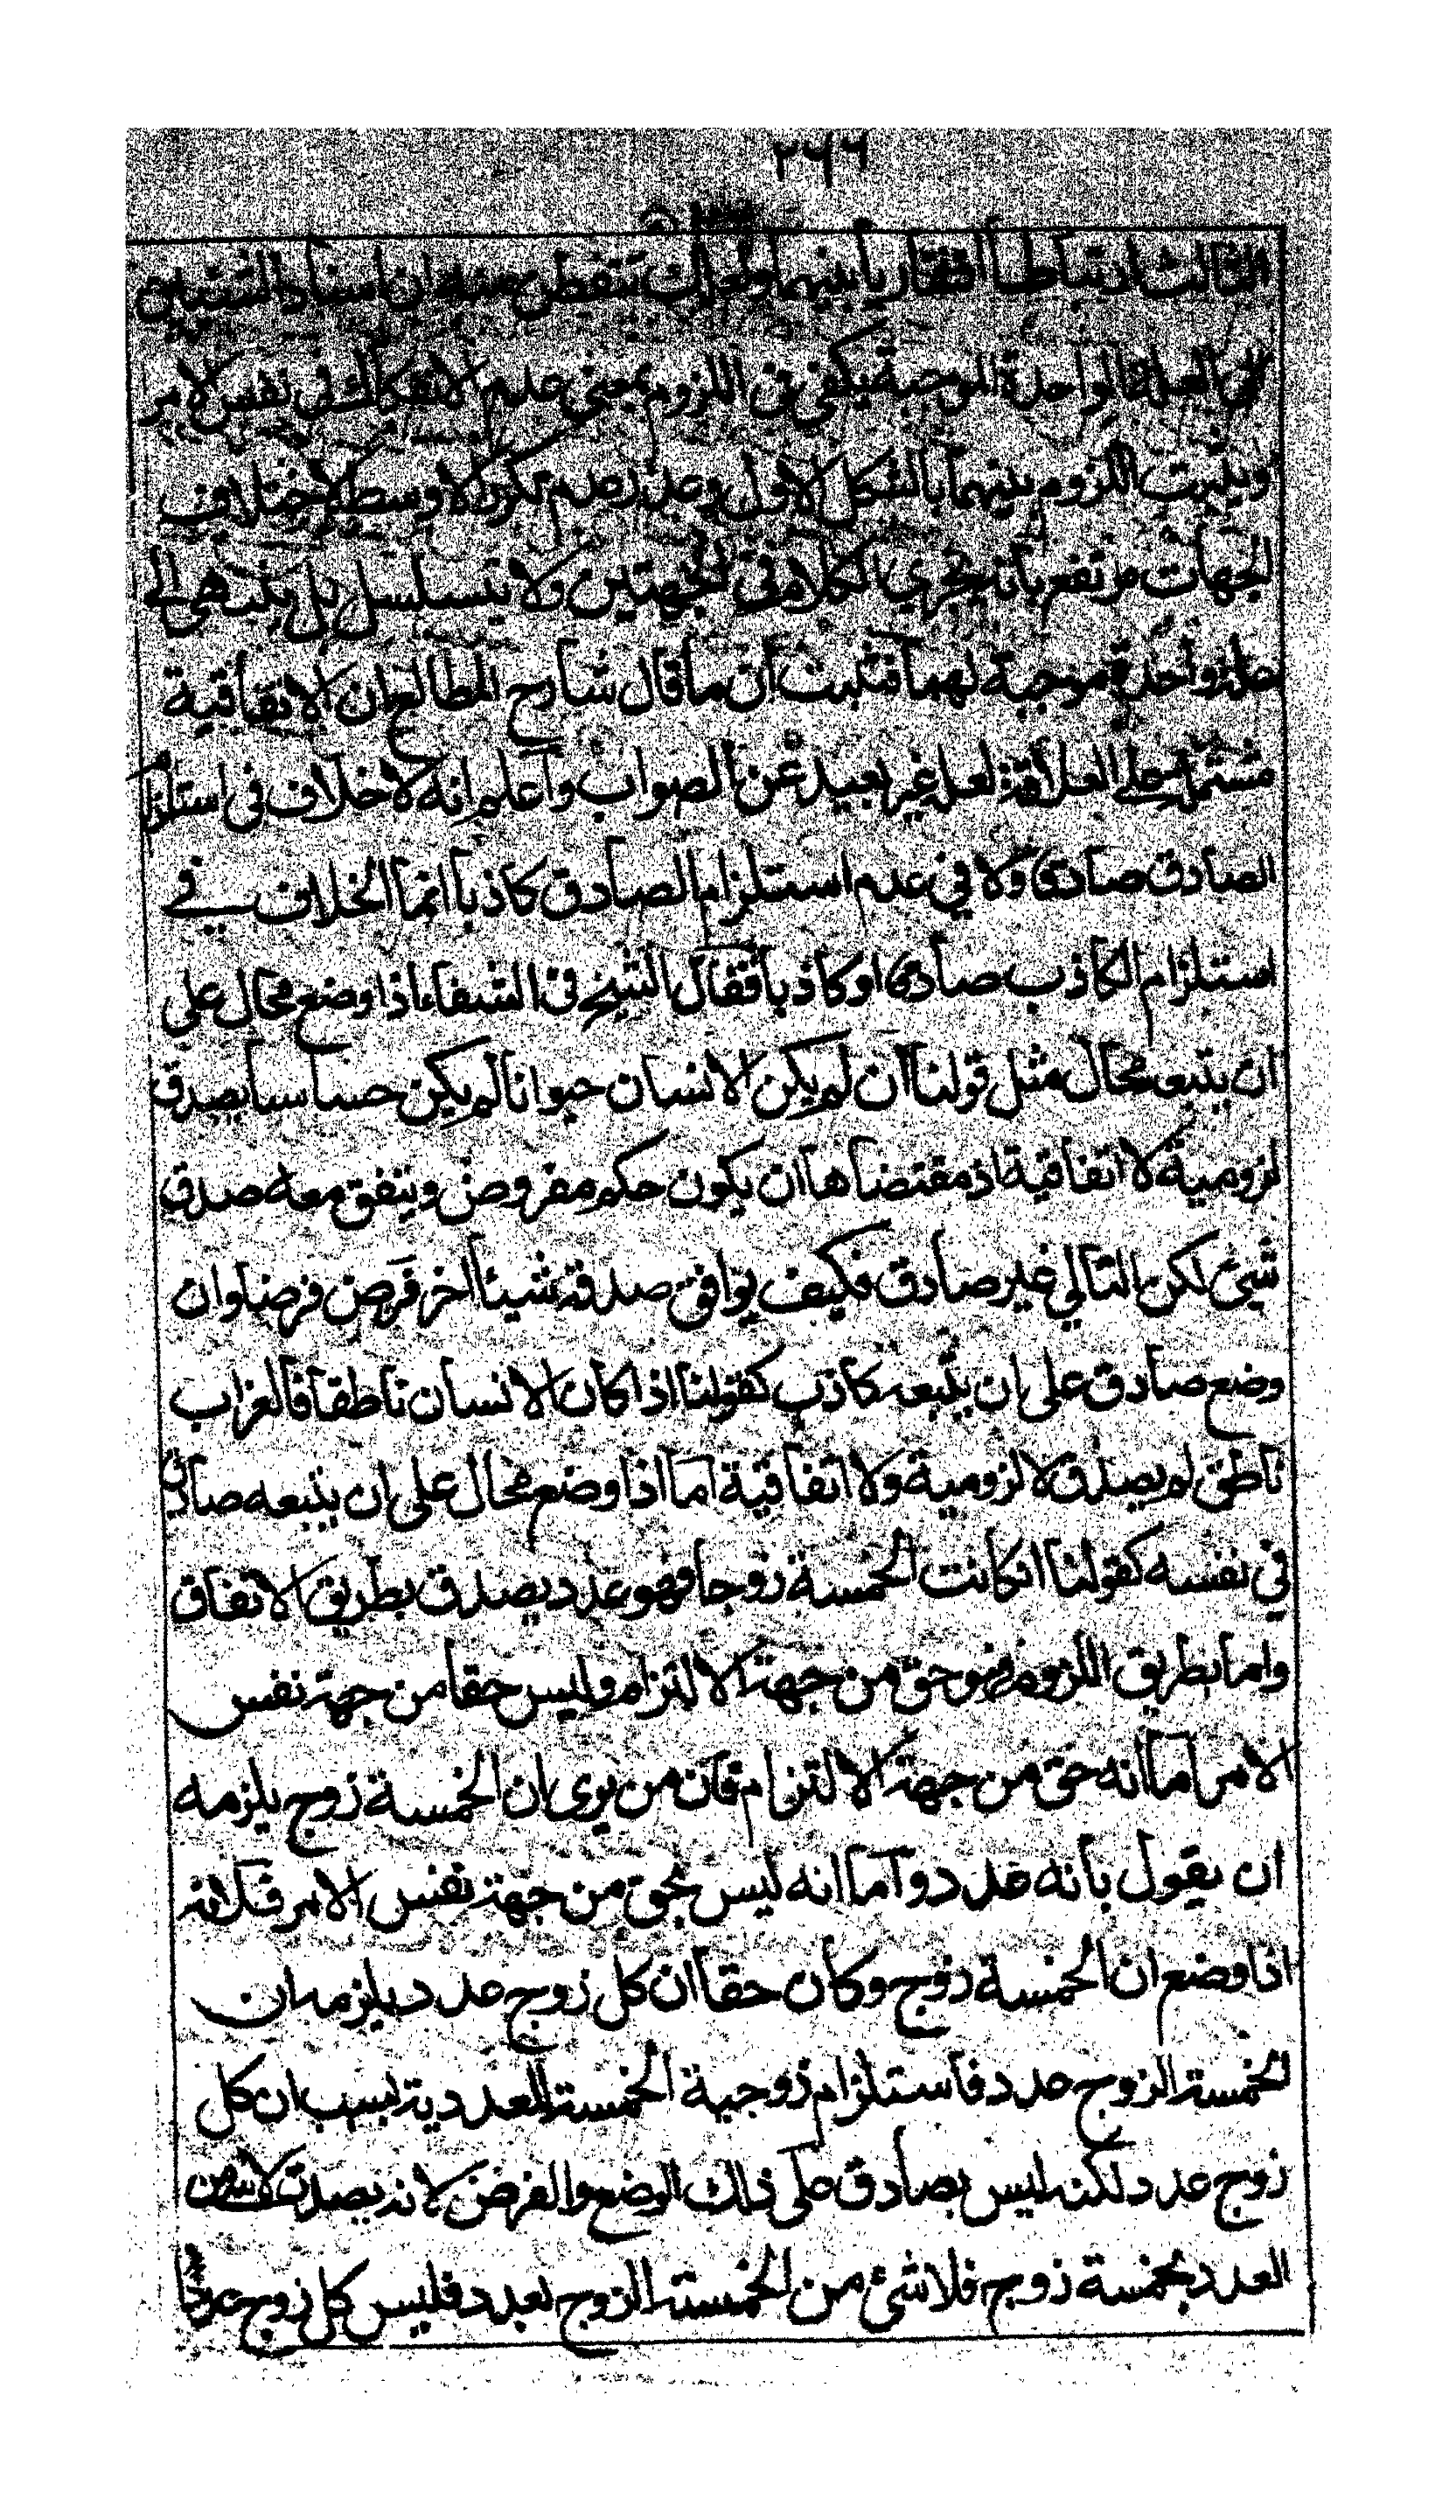 ٢٦٦
الثالث ارتباطا افتقاريا بينهما ولعلك تتفطن منه ان استناد الشيئين
الى العلة الواحدة الموجبة يكفى فى اللزوم بمعنى عدم الانفكاك في نفس الامر
ويثبت اللزوم بينهما بالشكل الاول وعذر عدم تكرر الاوسط لاختلاف
الجهات مرتفع بأنه يجري الكلام في الجهتين ولا يتسلسل بل ينتهى الى
علة واحدة موجبة لهما فثبت ان ما قال شارح المطالع ان الاتفاقية
مشتملة على العلاقة لعل غير بعيد عن الصواب واعلم انه لا خلاف فى استلزام
الصادق صادقا ولا في عدم استلزام الصادق كاذبا انما الخلاف في
استلزام الكاذب صادقا او كاذبا فقال الشيخ في الشفاء اذا وضع محال على
ان يتبعه محال مثل قولنا ان لم يكن الانسان حيوانا لم يكن حساسا يصدق
لزومية لا اتفاقية اذ مقتضاها ان يكون حكم مفروض ويتفق معه صدق
شيئ لكن التالي غير صادق فكيف يوافق صدقه شيئا اخر فرض فرضا وان
وضع صادق على ان يتبعه كاذب كقولنا اذا كان الانسان ناطقا فالغراب
ناطق لم يصدق لا لزومية ولا اتفاقية اما اذا وضع محال على ان يتبعه صادق
في نفسه كقولنا ان كانت الخمسة زوجا فهو عدد يصدق بطريق الاتفاق
واما بطريق اللزوم فهو حق من جهة الالتزام وليس حقا من جهة نفس
الامر اما انه حق من جهة الالتزام فان من يرى ان الخمسة زوج يلزمه
ان يقول بانه عدد و اما انه ليس بحق من جهة نفس الامر فلانه
اذا وضع ان الخمسة زوج وكان حقا ان كل زوج عدد يلزمه ان
الخمسة الزوج عدد فاستلزام زوجية الخمسة للعددية بسبب ان كل
زوج عدد لكنه ليس بصادق على ذلك الوضع والفرض لانه يصدق لا شئ من
العدد بخمسة زوج فلا شئ من الخمسة الزوج بعدد فليس كل زوج عددا